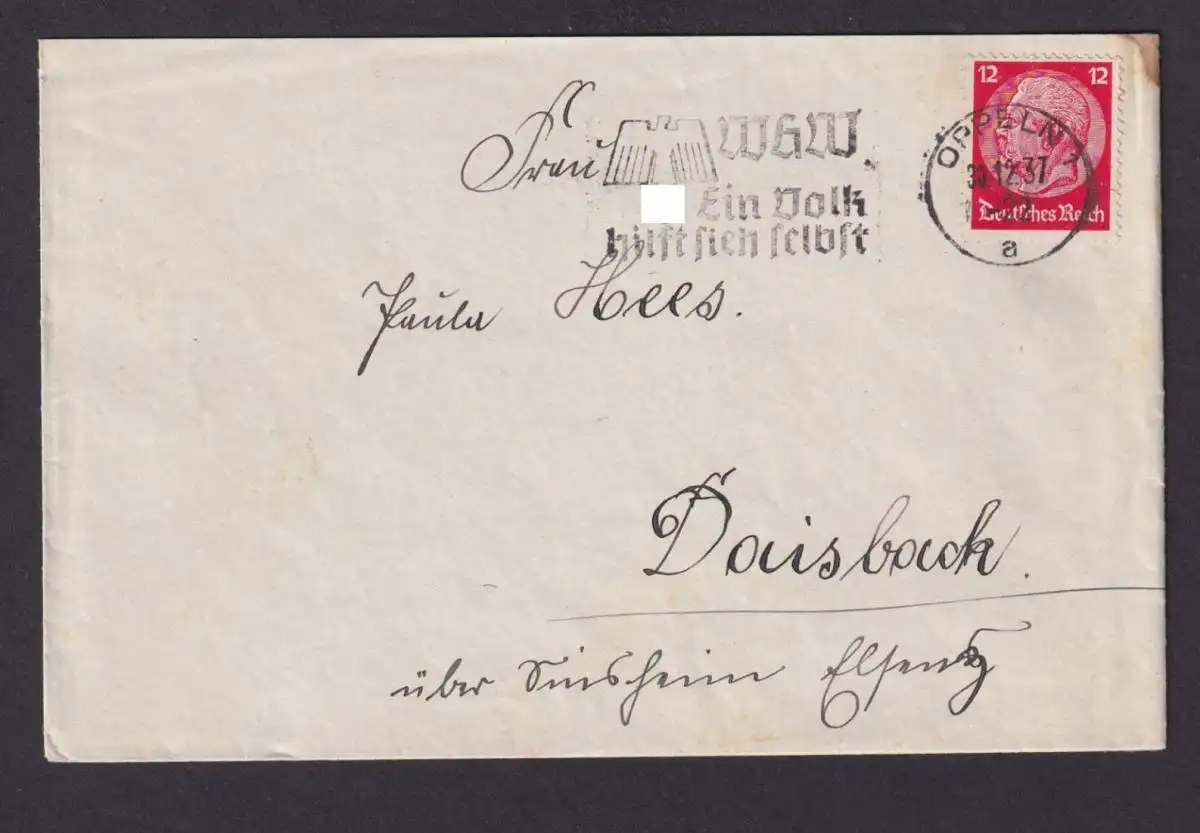 Frau
WHW.
Ein Volk
hilft sich selbst
12 12
Deutsches Reich
OPPELN 1
30.12.37
a
Paula Hees.
Daisbach.
über Sinsheim Elsenz